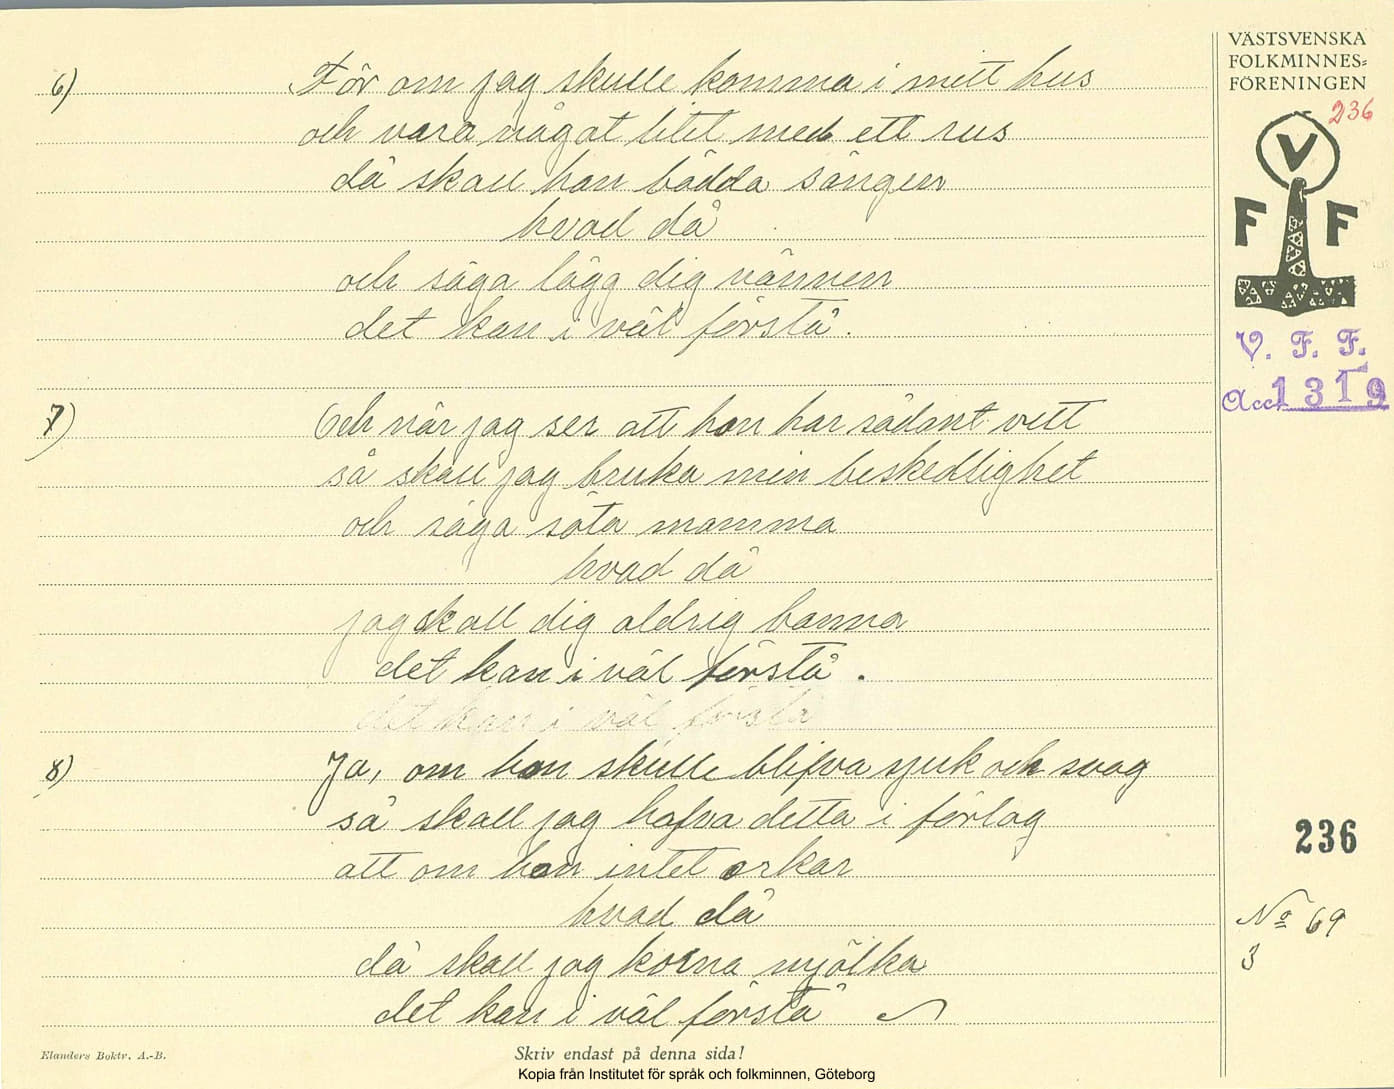 VÄSTSVENSKA
FOLKMINNES-
FÖRENINGEN
236
V
F F
V. F. F.
Acc. 1319
6) För om jag skulle komma i mitt hus
och vara något litet med ett rus
då skall hon bädda sängen
hvad då
och säga lägg dig vännen
det kan i väl förstå.
7) Och när jag ser att hon har sådant vett
så skall jag bruka min beskedlighet
och säga söta mamma
hvad då
jag skall dig aldrig banna
det kan i väl förstå.
det kan i väl förstå
8) Ja, om hon skulle blifva sjuk och svag
så skall jag hafva detta i förlag
att om hon intet orkar
hvad då
då skall jag korna mjölka
det kan i väl förstå
236
No 69
3
Elanders Boktr. A.-B.
Skriv endast på denna sida!
Kopia från Institutet för språk och folkminnen, Göteborg